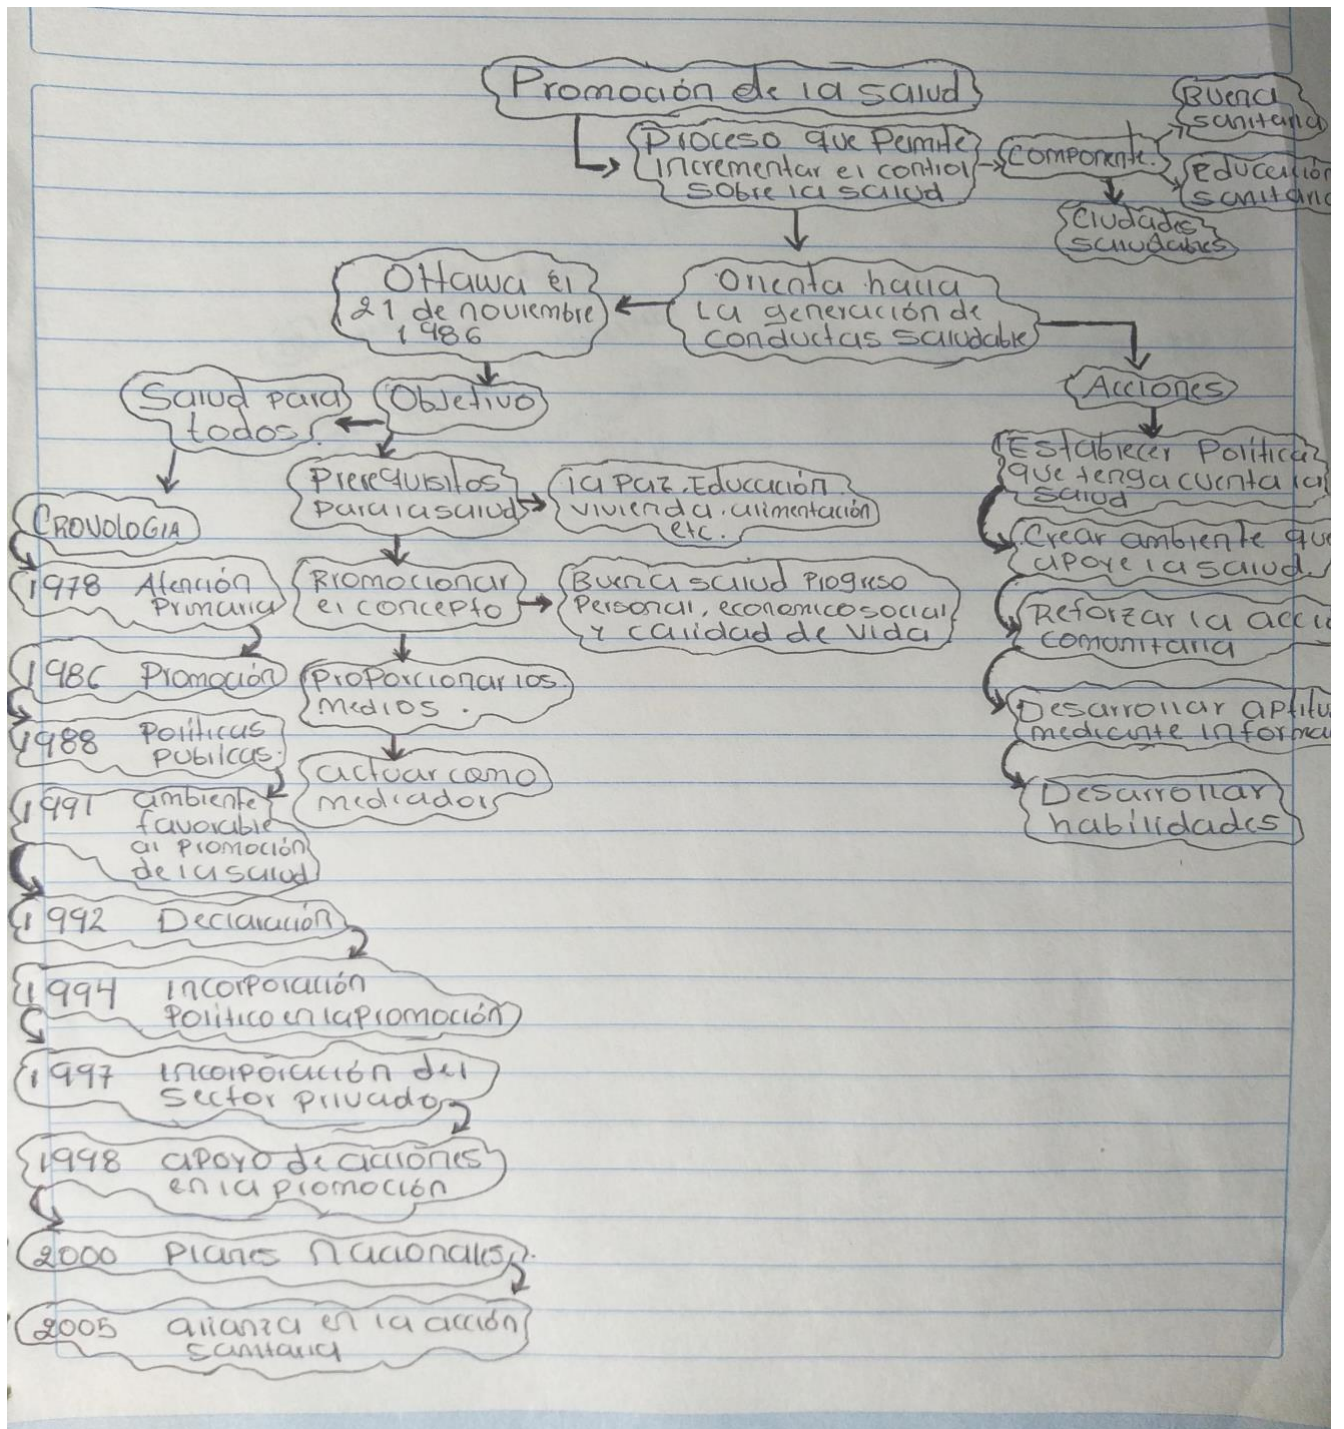 Promoción de la salud
Proceso que Permite
incrementar el control
sobre la salud
Componente.
Buena
sanitaria
Educación
sanitaria
Ciudades
saludables
Orienta hacia
La generación de
conductas saludable
Ottawa el
21 de noviembre
1986
Objetivo
Salud para
todos.
Prerequisitos
para la salud
la paz. Educación
vivienda. alimentación
etc.
Promocionar
el concepto
Buena salud Progreso
Personal, economico social
y calidad de vida
Proporcionar los
medios.
actuar como
mediador
CRONOLOGIA
1978 Atención
Primaria
1986 Promoción
1988 Políticas
publicas.
1991 ambiente
favorable
al promoción
de la salud
1992 Declaración
1994 incorporación
Político en la promoción
1997 incorporación del
Sector privado
1998 apoyo de acciónes
en la promoción
2000 Planes Nacionales.
2005 alianza en la acción
sanitaria
Acciones
Establecer Política
que tenga cuenta la
salud
Crear ambiente que
apoye la salud.
Reforzar la acció
comunitaria
Desarrollar aptitu
mediante informa
Desarrollar
habilidades